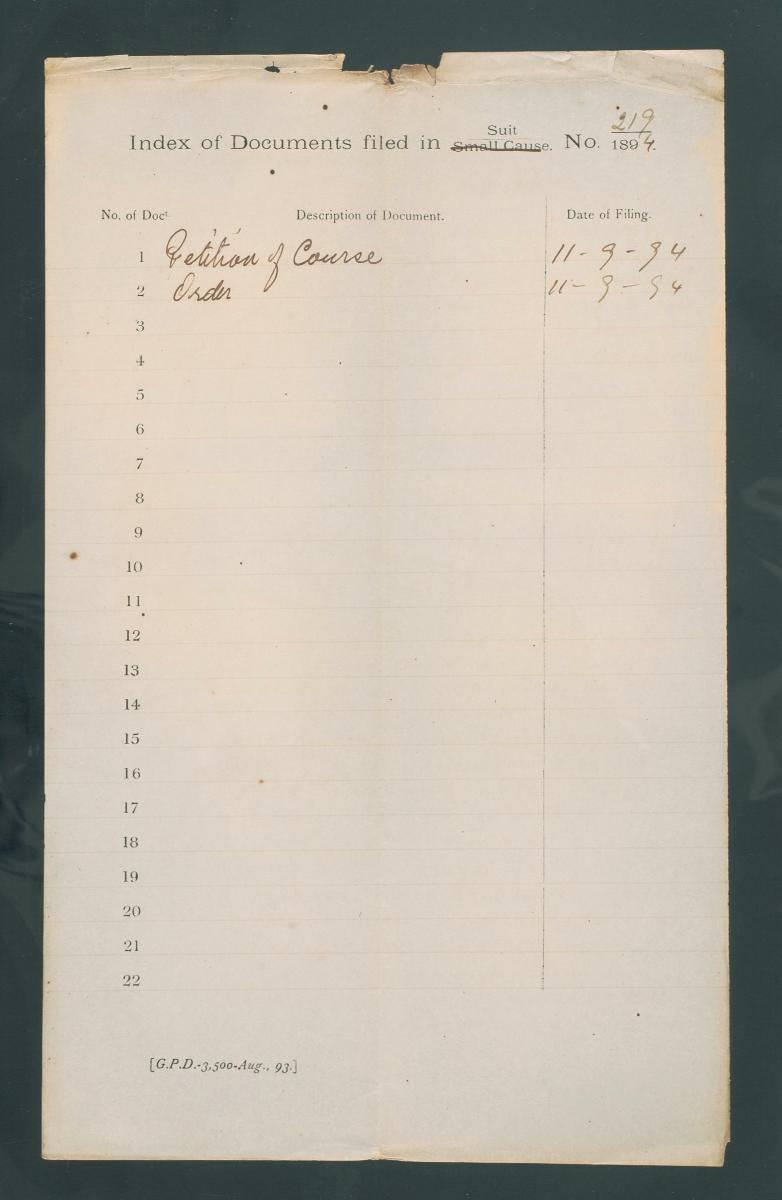 219
Suit
Index of Documents filed in Small Cause. No. 1894.
No. of Doct. Description of Document. Date of Filing.
1 Petition of Course 11-9-94
2 Order 11-9-94
3
4
5
6
7
8
9
10
11
12
13
14
15
16
17
18
19
20
21
22
[G.P.D.-3,500-Aug., 93.]